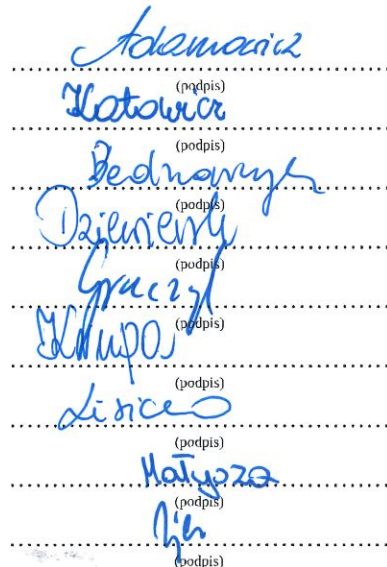 Adamowicz
(podpis)
Katowicz
(podpis)
Bednarczyk
(podpis)
(podpis)
Graczyk
(podpis)
Krupa
(podpis)
(podpis)
Małysza
(podpis)
(podpis)